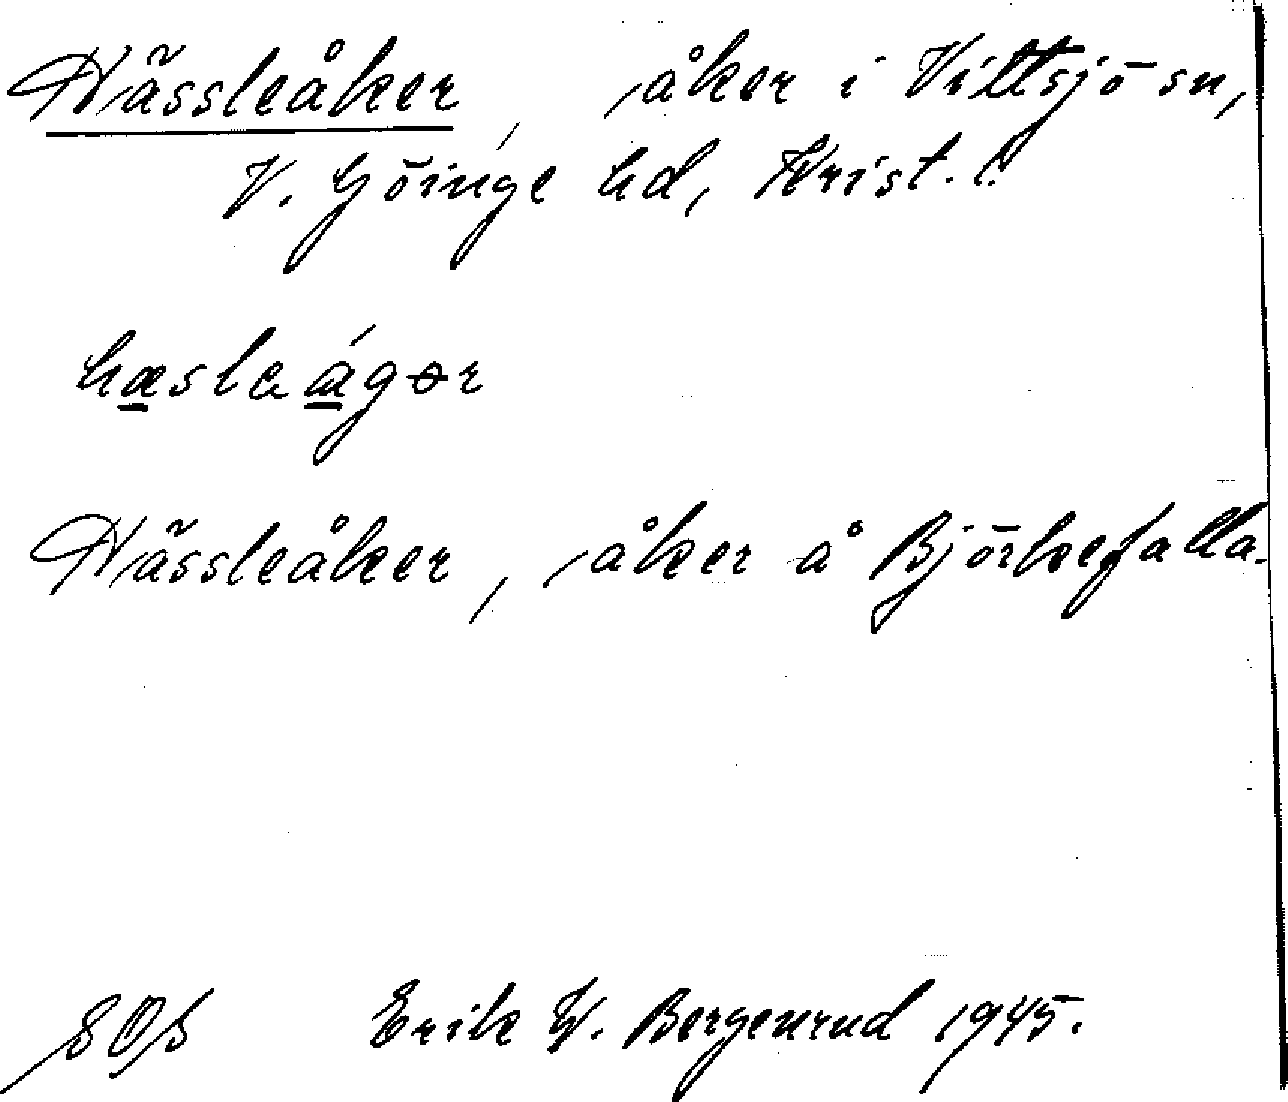 Hässleåker, åker i Vittsjö sn,
V. Göinge hd, Krist. l.
hæsleágər
Hässleåker, åker å Björkefalla.
Erik W. Bergenrud 1945.